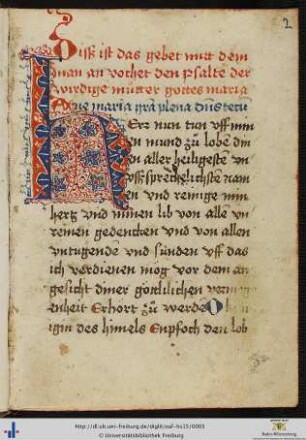 2
Diss ist das gebet mitt dem
man an vochet den psalter der
wirdige mu̍tter gottes maria
Aue maria grā plena dn̄s tecū
Herr nun tun vff min
en mund zu̍ lobe din
en aller heiligeste vn
vssprechelichste nam
en vnd reinige min
hertz vnd minen lib von alle vn
reinen gedencken vnd von allen
vntugende vnd sünden vff das
ich verdienen mog vor dem an
gesicht diner gottlichen
enheit Erhort zu̍ werde O
igin des himels Enpfoch den lob
http://dl.ub.uni-freiburg.de/diglit/
© Universitätsbibliothek Freiburg
Baden-Württemberg